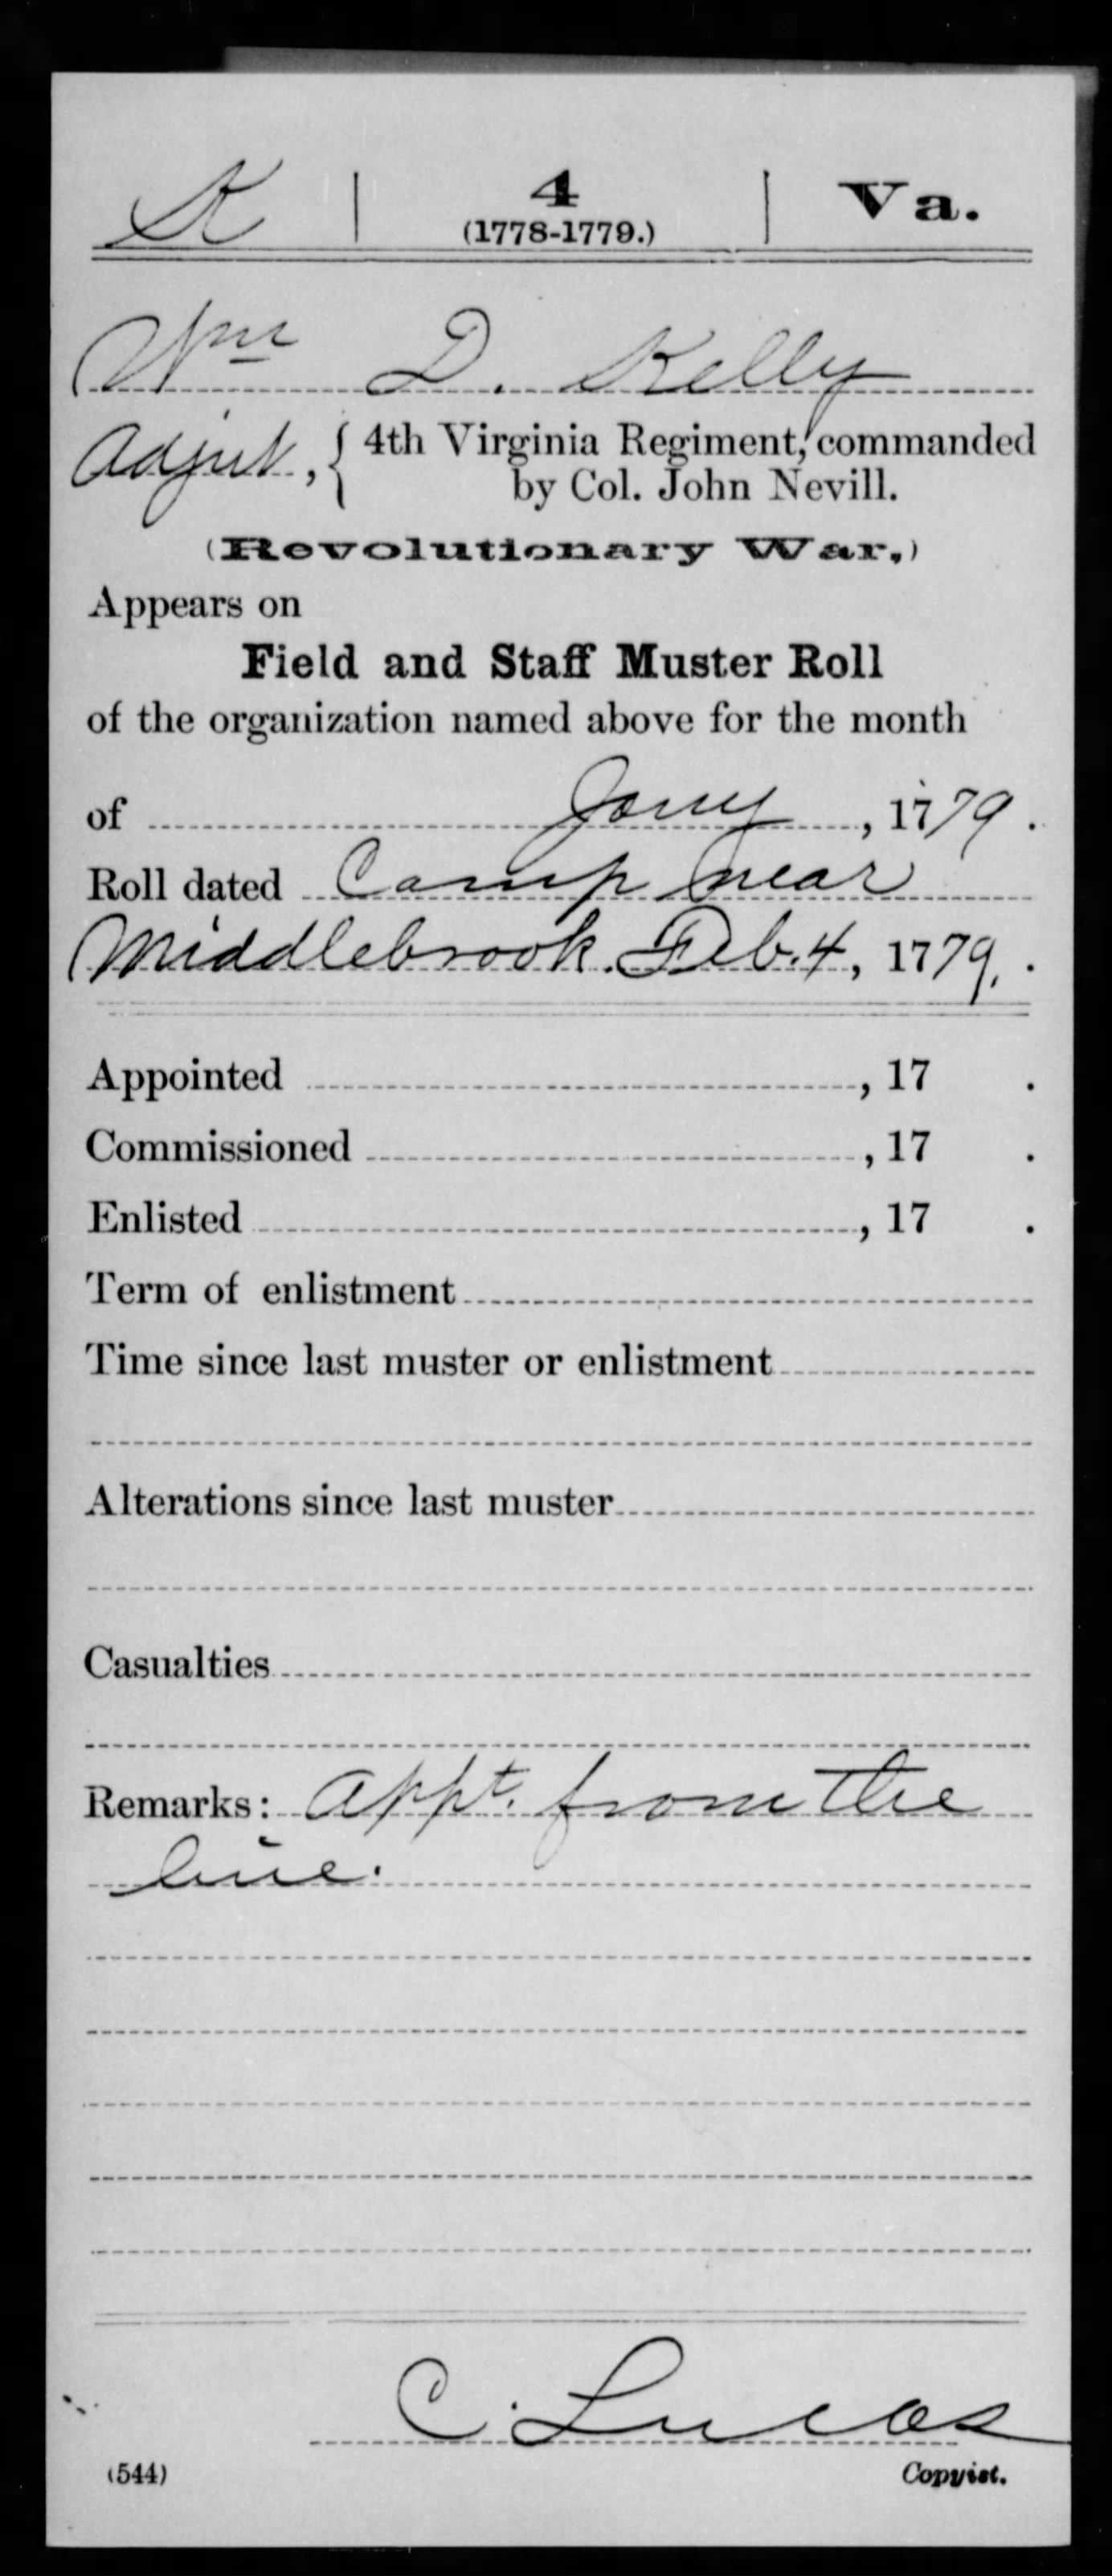 K | 4 | Va.
(1778-1779.)
Wm D. Kelly
Adjut, { 4th Virginia Regiment, commanded
by Col. John Nevill.
(Revolutionary War.)
Appears on
Field and Staff Muster Roll
of the organization named above for the month
of Jany, 1779.
Roll dated Camp near
Middlebrook. Feb. 4, 1779.
Appointed , 17 .
Commissioned , 17 .
Enlisted , 17 .
Term of enlistment
Time since last muster or enlistment
Alterations since last muster
Casualties
Remarks: Appt. from the
line.
C. Lucas
(544) Copyist.